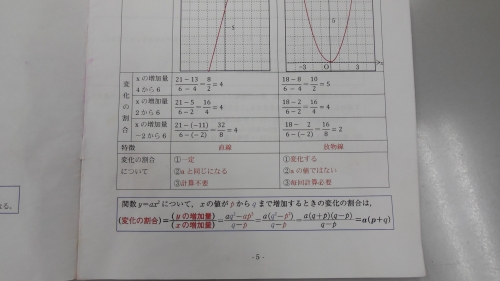 -5
5
-3
O
3
x
変化の割合
xの増加量
4から6
21-13/6-4=8/2=4
18-8/6-4=10/2=5
xの増加量
2から6
21-5/6-2=16/4=4
18-2/6-2=16/4=4
xの増加量
-2から6
21-(-11)/6-(-2)=32/8=4
18-2/6-(-2)=16/8=2
特徴
直線
放物線
変化の割合
について
①一定
②aと同じになる
③計算不要
①変化する
②aの値ではない
③毎回計算必要
関数y=ax²について、xの値がpからqまで増加するときの変化の割合は、
(変化の割合)=(yの増加量)/(xの増加量)=aq²-ap²/q-p=a(q²-p²)/q-p=a(q+p)(q-p)/q-p=a(p+q)
- 5 -
る。